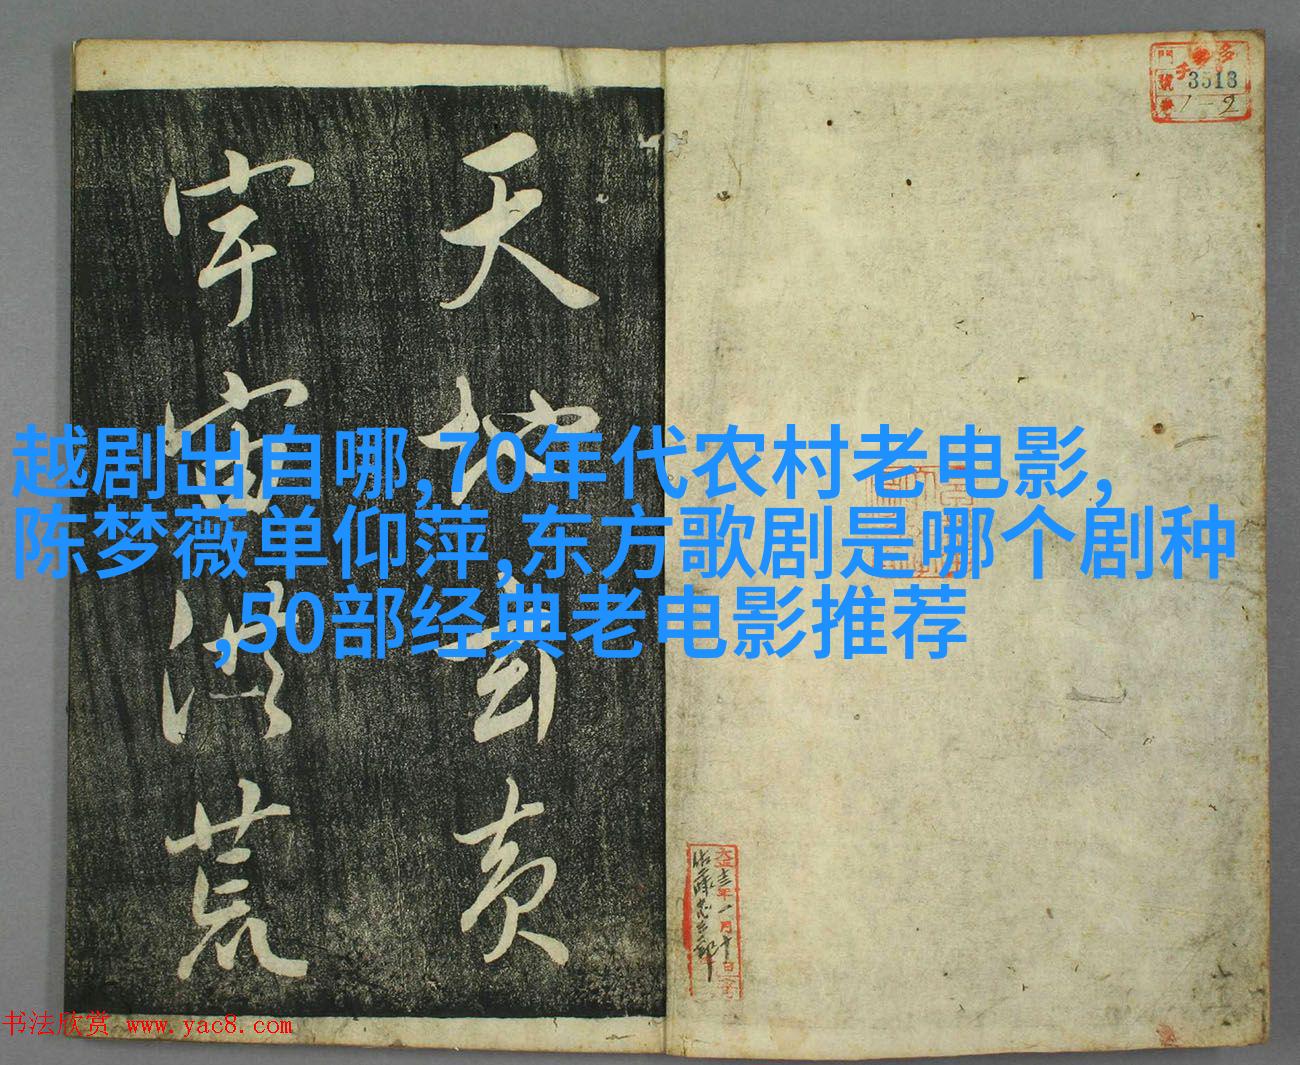 天地玄黄
宇宙洪荒
越剧出自哪,70年代农村老电影,
陈梦薇单仰萍,东方歌剧是哪个剧种
,50部经典老电影推荐
3513
1-2
大正十三年一月十日
书法欣赏 www.yac8.com